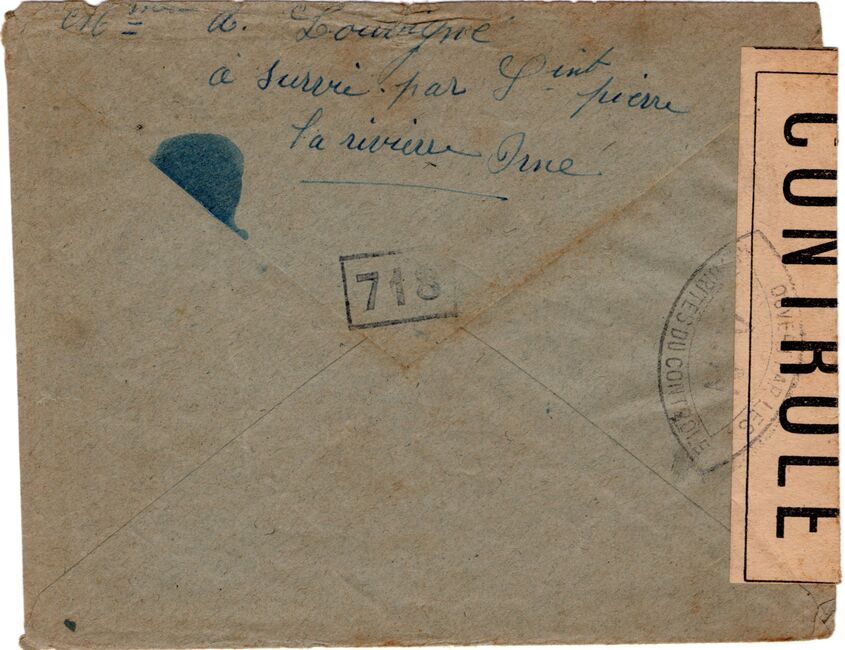 Mme A. Louvigné
à Survie par Saint
pierre
la rivierre Orne
718
OUVERT PAR LES
AUTORITÉS DU CONTROLE
CONTROLE